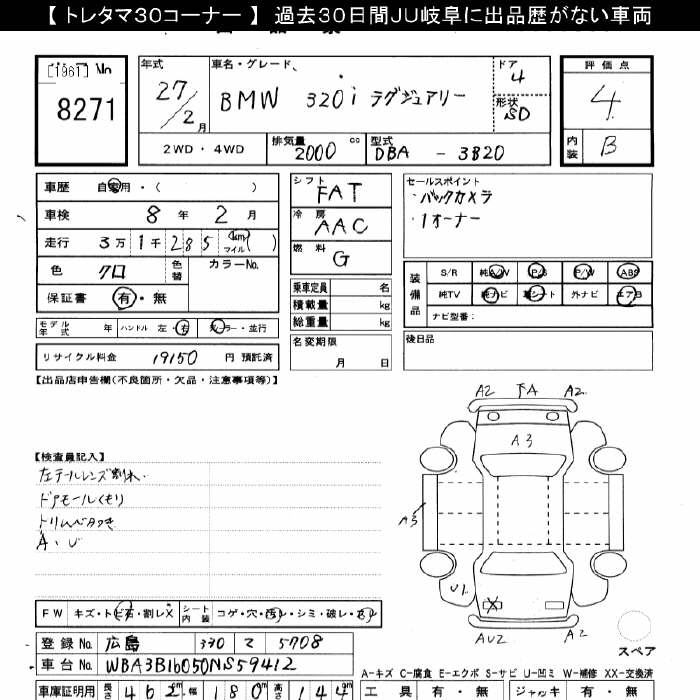 【 トレタマ３０コーナー 】 過去３０日間ＪＵ岐阜に出品歴がない車両
[1961] No
8271
年式
27/2月
車名・グレード
BMW 320i ラグジュアリー
ドア
4
形状
SD
2WD・4WD
排気量
2000 cc
型式
DBA - 3B20
評価点
4
内装
B
車歴 自家用・( )
車検 8年 2月
走行 3万 1千 285 km マイル ( )
色 クロ
色替
カラーNo.
保証書 有・無
モデル年式 年 ハンドル 左・右 ディーラー・並行
リサイクル料金 19150 円 預託済
シフト
FAT
冷房
AAC
燃料
G
乗車定員 名
積載量 kg
総重量 kg
名変期限
月 日
セールスポイント
・バックカメラ
・1オーナー
装備品
S/R 純A/W P/S P/W ABS
純TV 純ナビ 革シート 外ナビ エアB
ナビ型番：
後日品
【出品店申告欄(不良箇所・欠品・注意事項等)】
【検査員記入】
左テールレンズ割れ
ドアモールくもり
トリムベタつき
A・U
A2 下A A2
A3
A3
U1
X
AU2 A2
スペア
FW キズ・トビ石・割レX
シート内装 コゲ・穴・汚レ・シミ・破レ・スレ
登録No. 広島 330 て 5708
車台No. WBA3B16050NS59412
車庫証明用 長さ 462cm 幅 180cm 高さ 144cm
A-キズ C-腐食 E-エクボ S-サビ U-凹ミ W-補修 XX-交換済
工具 有・無 ジャッキ 有・無